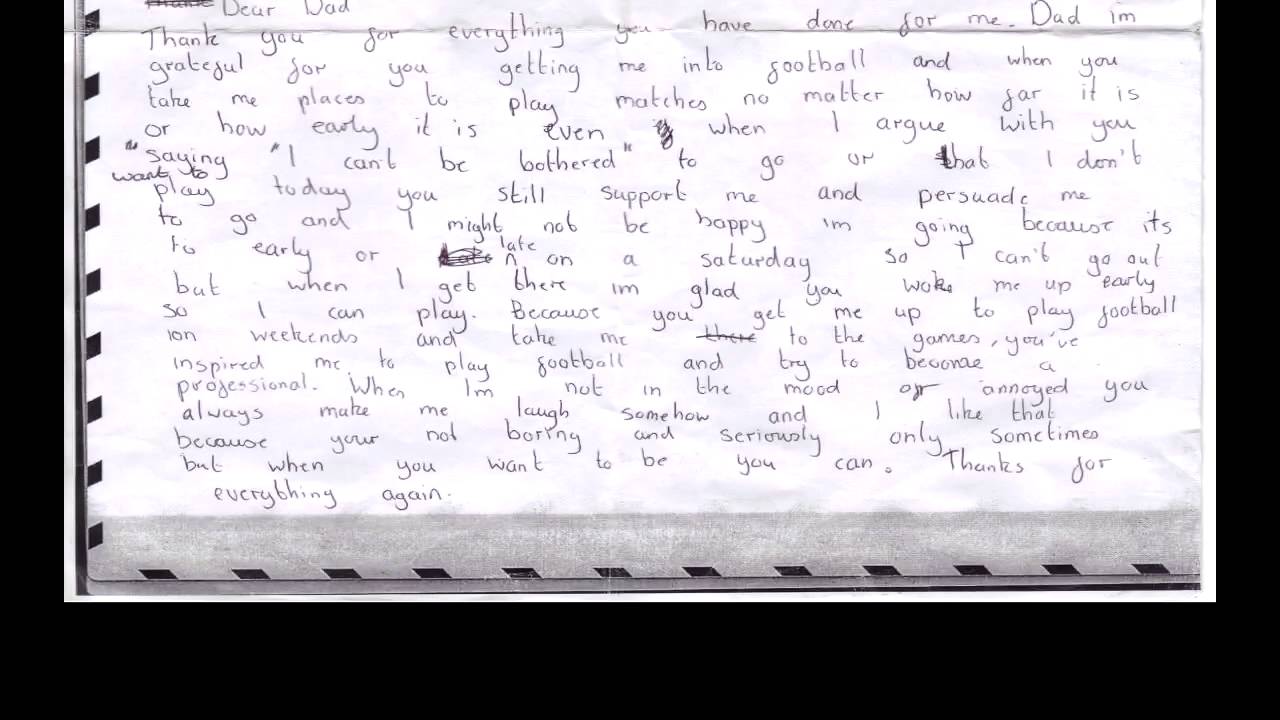 Dear Dad
Thank you for everything you have done for me. Dad im
grateful for you getting me into football and when you
take me places to play matches no matter how far it is
or how early it is even when I argue with you
"saying "I can't be bothered" to go or that I don't
want to
play today you still support me and persuade me
to go and I might not be happy im going because its
late
to early or on a saturday so I can't go out
but when I get there im glad you woke me up early
so I can play. Because you get me up to play football
on weekends and take me there to the games, you've
inspired me to play football and try to become a
professional. When Im not in the mood or annoyed you
always make me laugh somehow and I like that
because your not boring and seriously only sometimes
but when you want to be you can. Thanks for
everything again.